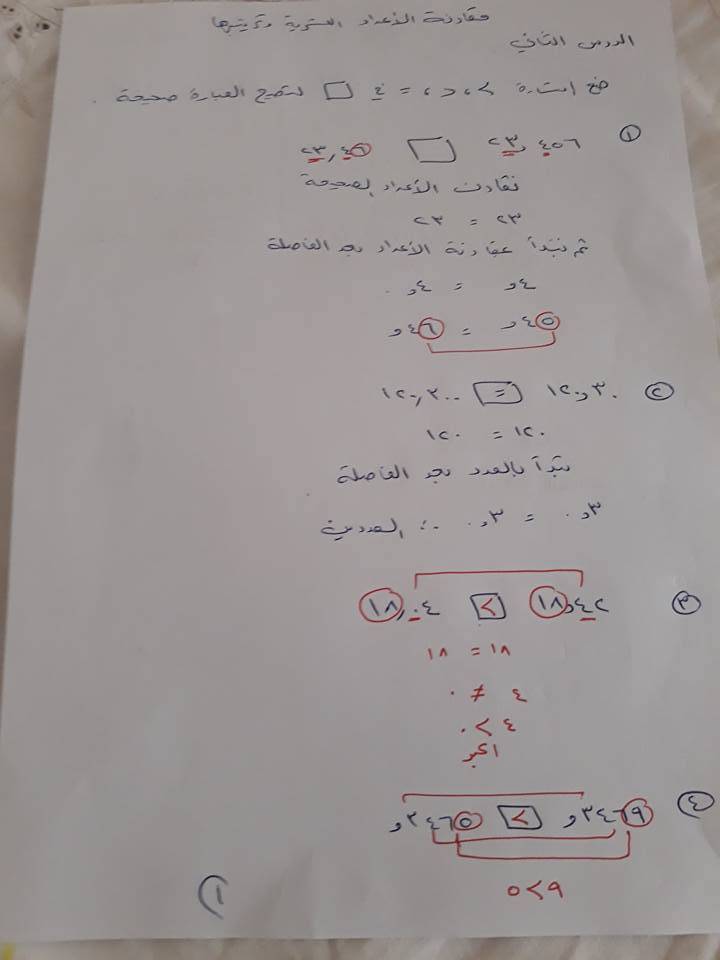 مقارنة الأعداد العشرية وترتيبها
الدرس الثاني
ضع إشارة > ، < ، = في □ لتصبح العبارة صحيحة .
① ٢٣,٤٥٦ □ ٢٣,٤٦
نقارن الأعداد الصحيحة
٢٣ = ٢٣
ثم نبدأ بمقارنة الأعداد بعد الفاصلة
٤و = ٤و
٤٥و = ٤٦و
② ١٢٠,٣٠ = ١٢٠,٣٠٠
١٢٠ = ١٢٠
نبدأ بالعدد بعد الفاصلة
٣٠و = ٣٠و ∴ العددين
③ ١٨,٤٢ < ١٨,٠٤
١٨ = ١٨
٤ ≠ ٠
٤ < ٠
أكبر
④ ٣٤٦٩و < ٣٤٦٥و
٩ < ٥
١